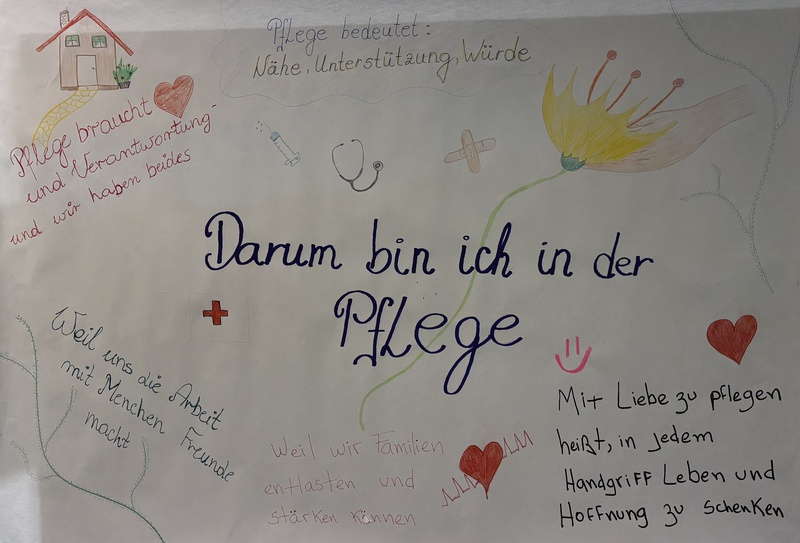 Pflege bedeutet:
Nähe, Unterstützung, Würde
Pflege braucht
und Verantwortung-
und wir haben beides
Darum bin ich in der
Pflege
Weil uns die Arbeit
mit Menchen Freunde
macht
Weil wir Familien
entlasten und
stärken können
Mit Liebe zu pflegen
heißt, in jedem
Handgriff Leben und
Hoffnung zu schenken